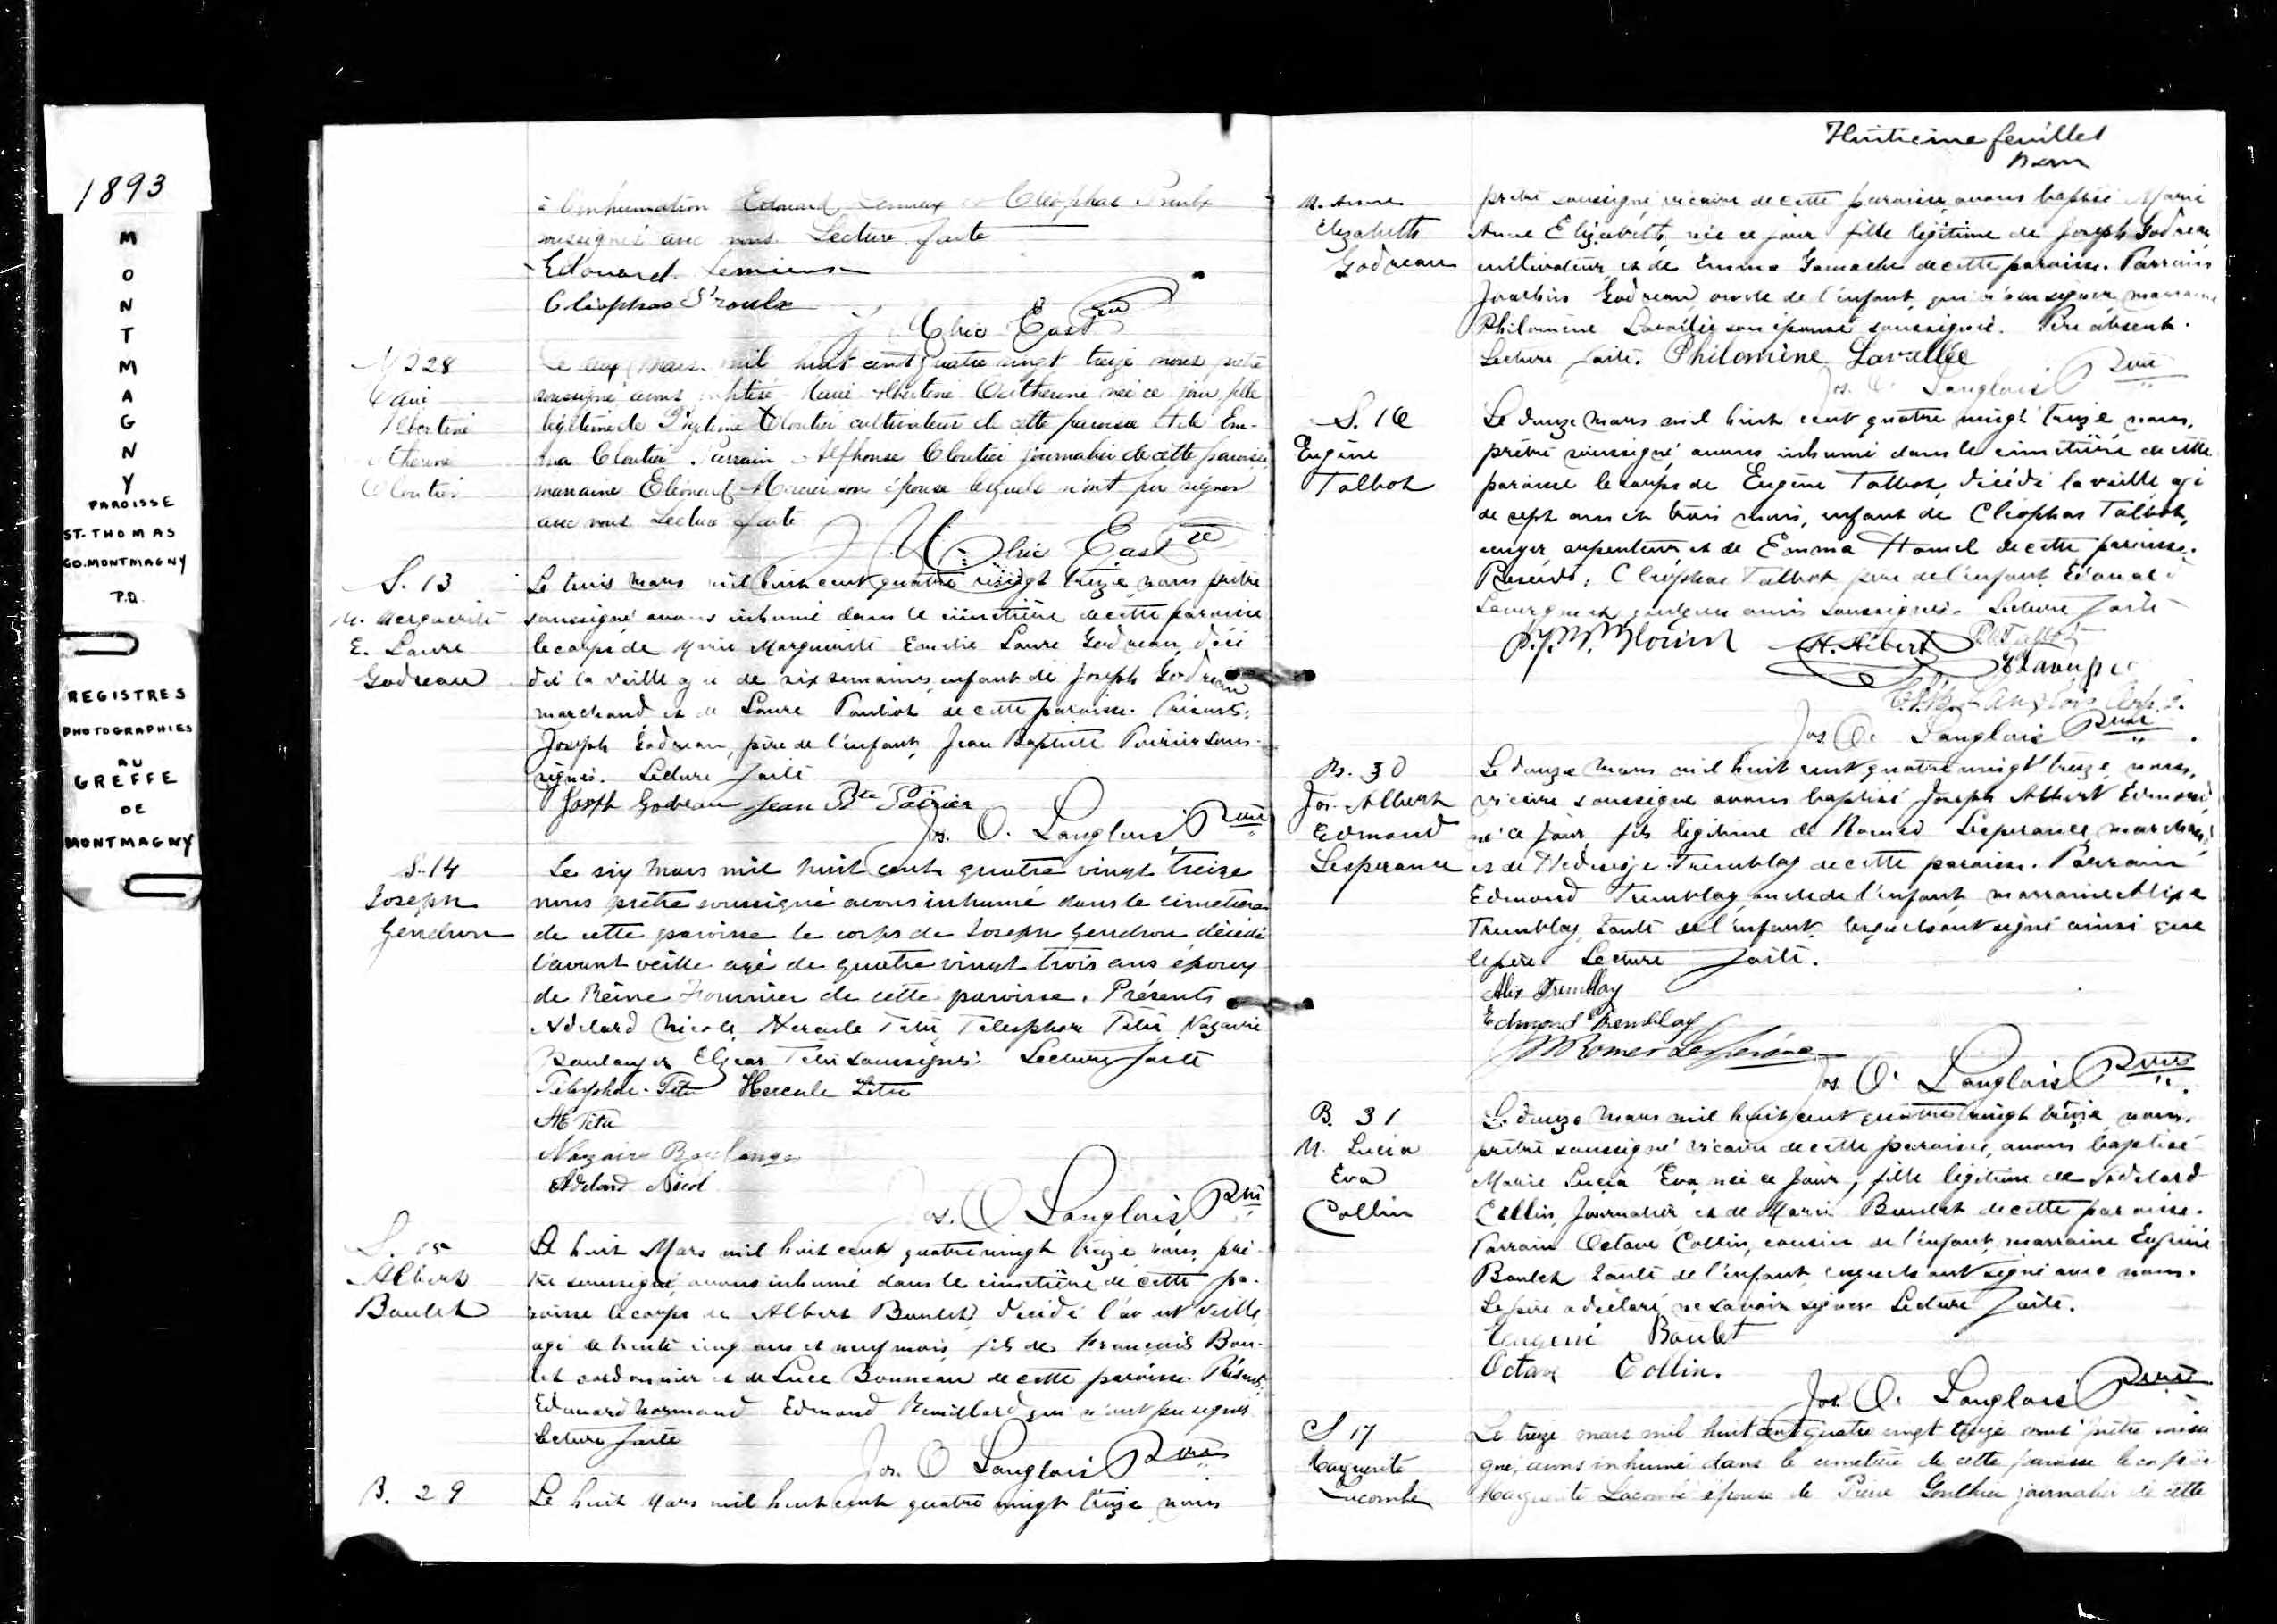 1893
MONTMAGNY
PAROISSE
ST. THOMAS
CO. MONTMAGNY
P.Q.
REGISTRES
PHOTOGRAPHIES
AU
GREFFE
DE
MONTMAGNY
à l'inhumation Edouard Lemieux et Cléophas Proulx
soussignés avec nous. Lecture faite
Edouard Lemieux
Cléophas Proulx
Ptre
28
Le deux Mars mil huit cent quatre vingt treize nous prêtre
Marie
soussigné avons baptisé Marie Albertine Catherine née ce jour fille
Albertine
légitime de Cloutier cultivateur de cette paroisse et de Em-
Catherine
ma Cloutier. Parrain Alphonse Cloutier journalier de cette paroisse
Cloutier
marraine Mercier son épouse lesquels n'ont pu signer
avec nous Lecture faite
S. 13
Le trois mars mil huit cent quatre vingt treize nous prêtre
M. Marguerite
soussigné avons inhumé dans le cimetière de cette paroisse
E. Laure
le corps de Marie Marguerite Emélie Laure Godreau, décé
Godreau
dée la veille agée de six semaines, enfant de Joseph Godreau
marchand et de Laure Pouliot de cette paroisse. Présents:
Joseph Godreau, père de l'enfant, Jean Baptiste Poirier sous-
signés. Lecture faite
Joseph Godreau Jean Bte Poirier
Jos. O. Langlois Ptre
S. 14
Le six Mars mil huit cent quatre vingt treize
Joseph
nous prêtre soussigné avons inhumé dans le cimetière
Gendron
de cette paroisse le corps de Joseph Gendron, décédé
l'avant veille agé de quatre vingt trois ans époux
de Reine Fournier de cette paroisse. Présents
Adelard Nicole, Hercule Têtu, Télesphore Têtu, Nazaire
Boulanger Elzear Têtu soussignés. Lecture faite
Télesphore Têtu Hercule Têtu
Têtu
Nazaire Boulanger
Adelard Nicol
Jos. O Langlois Ptre
S. 15
Le huit Mars mil huit cent quatre vingt treize nous, prê-
Albert
tre soussigné, avons inhumé dans le cimetière de cette pa-
Boulet
roisse le corps de Albert Boulet, décédé l'avant veille
agé de trente cinq ans et neuf mois, fils de François Bou-
let cordonnier et de Luce Bonneau de cette paroisse. Présents,
Edouard Normand Edmond Remillard qui n'ont pu signer
Lecture faite
Jos. O Langlois Ptre
B. 29
Le huit Mars mil huit cent quatre vingt treize, nous
Huitième feuillet
M. Anne
prêtre soussigné vicaire de cette paroisse, avons baptisé Marie
Elizabeth
Anne Elizabeth, née ce jour fille légitime de Joseph Godreau
Godreau
cultivateur, et de Emma Gamache de cette paroisse. Parrain
Godreau oncle de l'enfant, qui n'a su signer, marraine
Philomène Lavallée son épouse soussignée. Père absent.
Lecture faite. Philomène Lavallée
Jos. O. Langlois Ptre
S. 16
Le douze Mars mil huit cent quatre vingt treize nous,
Eugène
prêtre soussigné avons inhumé dans le cimetière de cette
Talbot
paroisse le corps de Eugène Talbot, décédé la veille agé
de sept ans et trois mois, enfant de Cléophas Talbot,
arpenteur et de Emma Hamel de cette paroisse.
Présents: Cléophas Talbot père de l'enfant Edouard
Lavergne et quelques amis soussignés. Lecture faite
H. Hébert
Langlois
Jos O. Langlois Ptre
B. 30
Le douze Mars mil huit cent quatre vingt treize, nous,
Jos. Albert
vicaire soussigné avons baptisé Joseph Albert Edmond,
Edmond
né ce jour, fils légitime de Roméo Lesperance, marchand
Lesperance
et de Hedwidge Tremblay de cette paroisse. Parrain
Edmond Tremblay, oncle de l'enfant, marraine Alix
Tremblay, tante de l'enfant, lesquels ont signé ainsi que
le père. Lecture faite.
Alix Tremblay
Edmond Tremblay
Jos. O. Langlois Ptre
B. 31
Le douze Mars mil huit cent quatre vingt treize, nous,
M. Lucia
prêtre soussigné vicaire de cette paroisse, avons baptisé
Eva
Marie Lucia Eva, née ce jour, fille légitime de
Collin
Collin, Journalier et de Marie Boulet de cette paroisse.
Parrain Octave Collin, cousin de l'enfant, marraine Eugénie
Boulet tante de l'enfant, lesquels ont signé avec nous.
Le père a déclaré ne savoir signer. Lecture faite.
Eugénie Boulet
Octave Collin.
Jos. O. Langlois Ptre
S 17
Le treize mars mil huit cent quatre vingt treize nous prêtre soussi
Marguerite
gné, avons inhumé dans le cimetière de cette paroisse le corps de
Lacombe
Marguerite Lacombe épouse de Pierre Gonthier journalier de cette